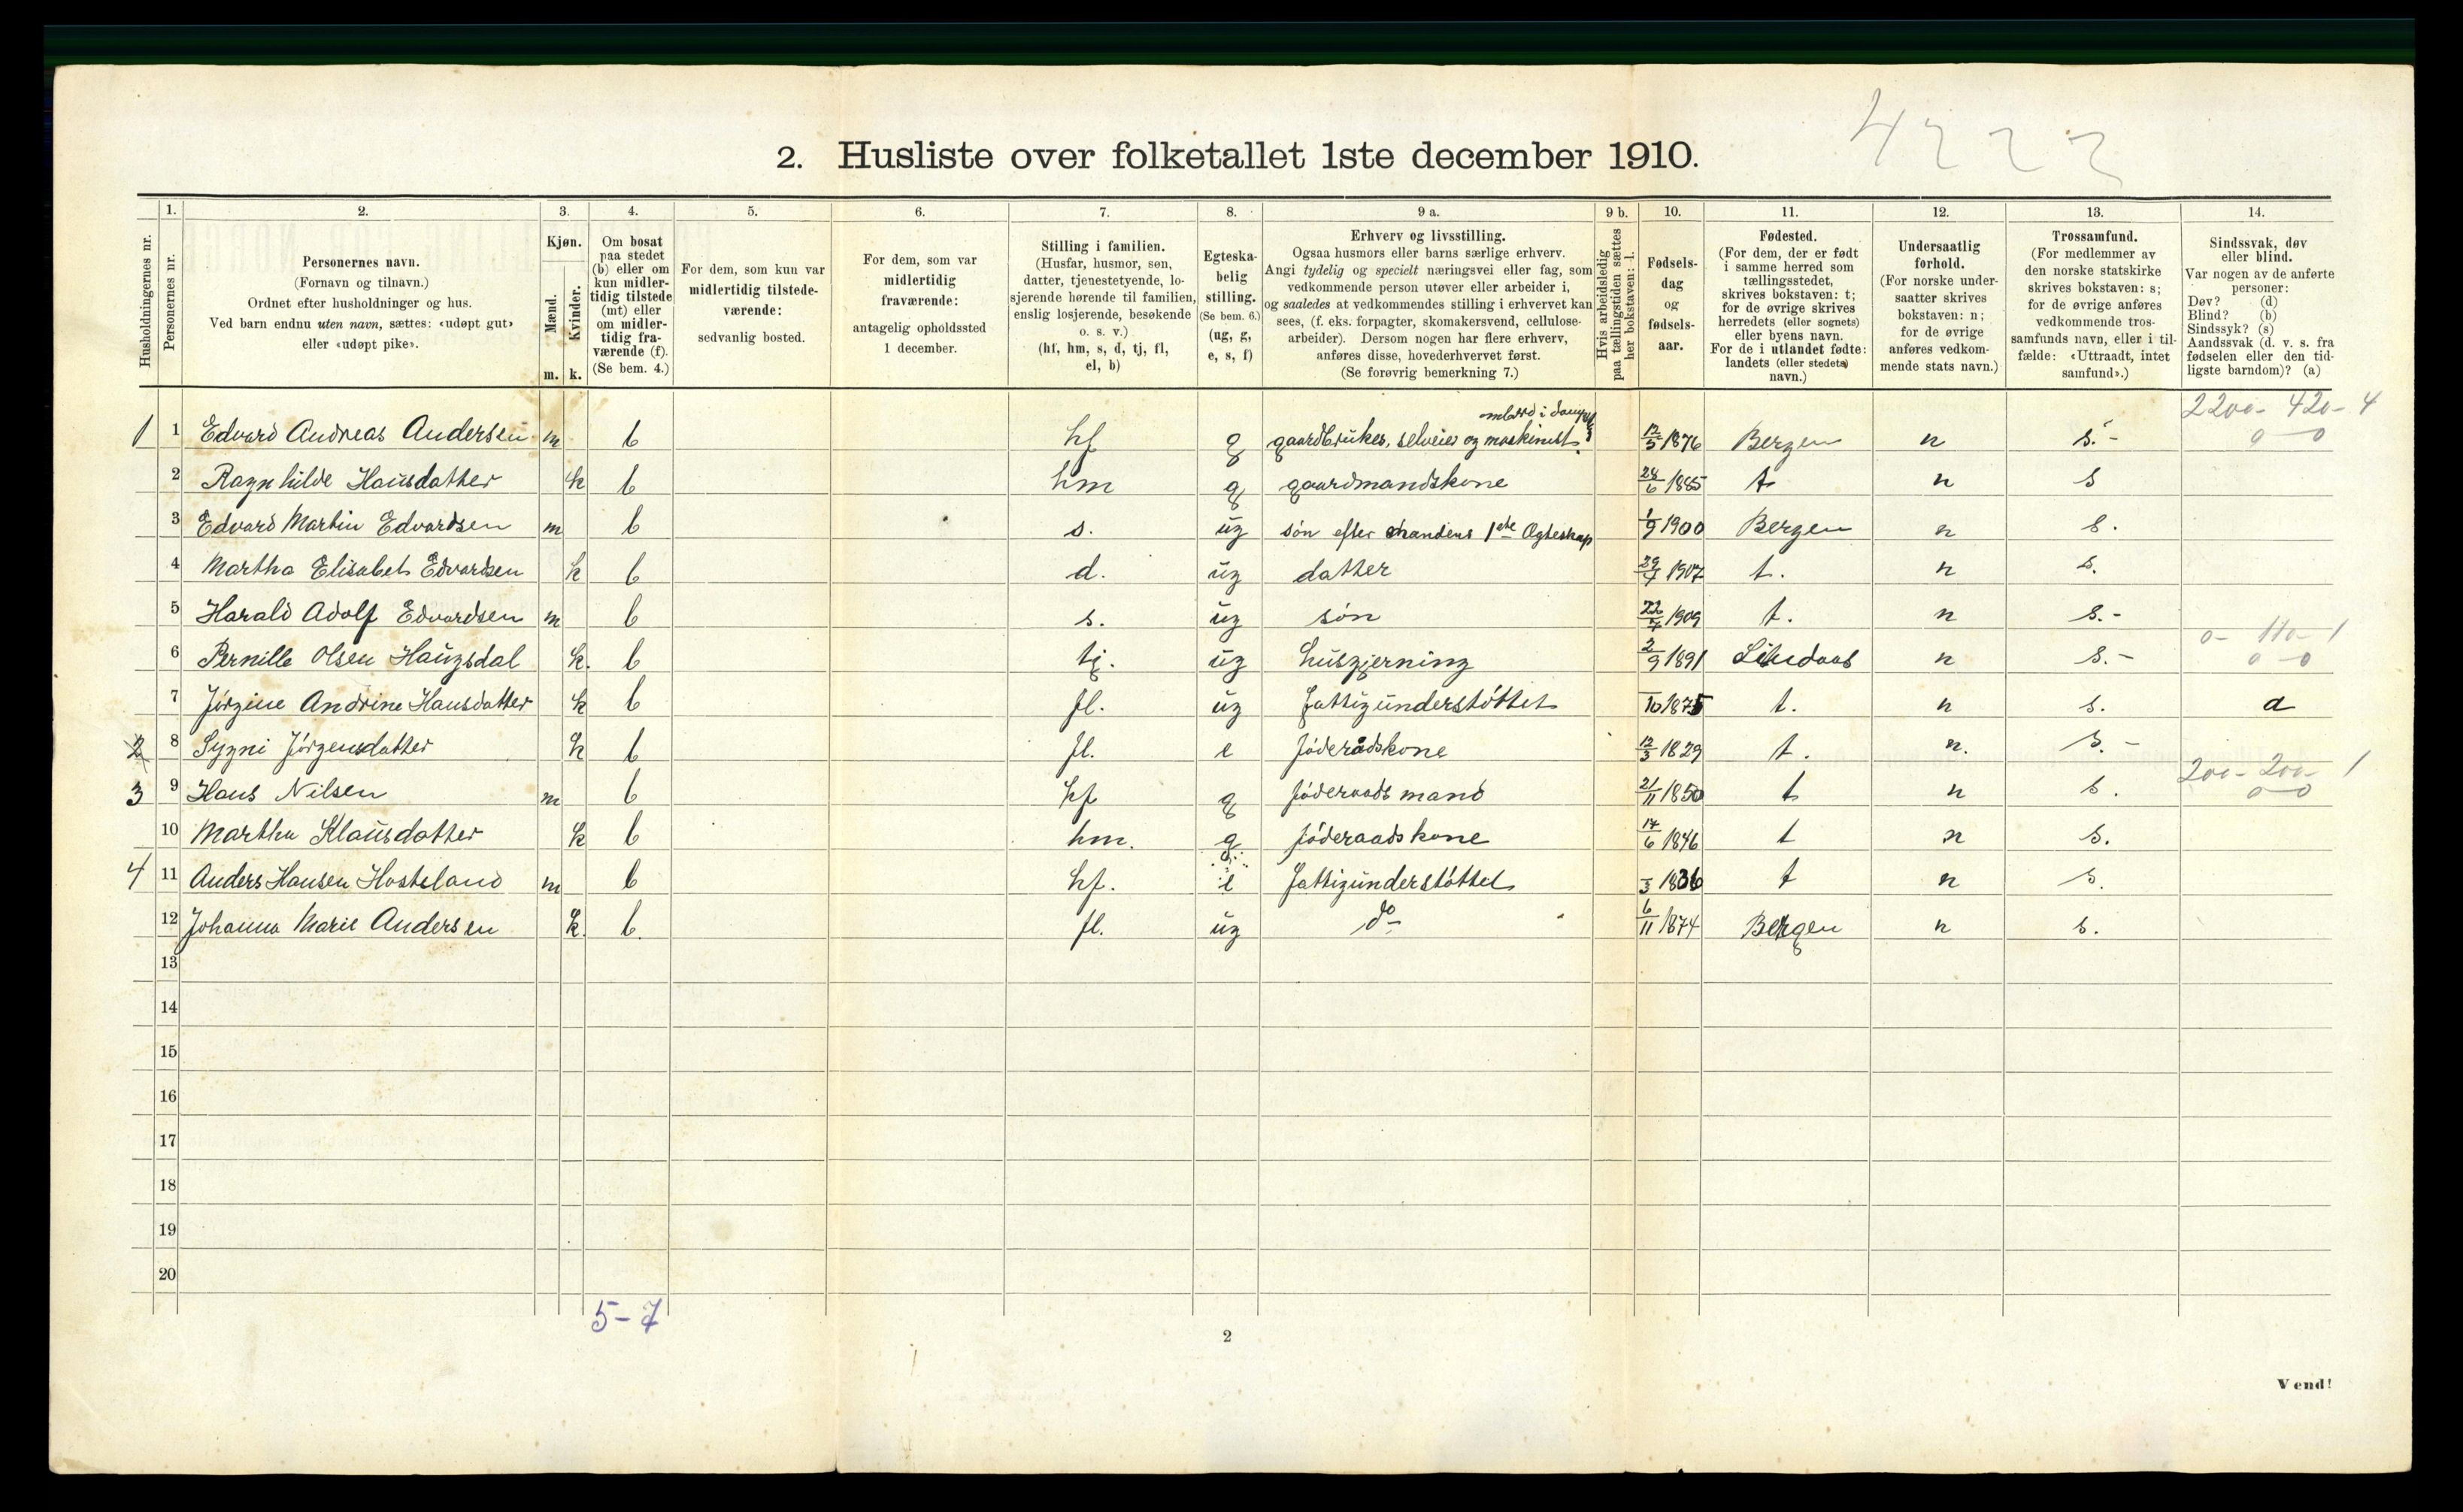 4222
2. Husliste over folketallet 1ste december 1910.
1. 2. 3. 4. 5. 6. 7. 8. 9 a. 9 b. 10. 11. 12. 13. 14.
Husholdningernes nr.
Personernes nr.
Personernes navn.
(Fornavn og tilnavn.)
Ordnet efter husholdninger og hus.
Ved barn endnu uten navn, sættes: «udøpt gut»
eller «udøpt pike».
Kjøn.
Mænd.
Kvinder.
m. k.
Om bosat
paa stedet
(b) eller om
kun midler-
tidig tilstede
(mt) eller
om midler-
tidig fra-
værende (f).
(Se bem. 4.)
For dem, som kun var
midlertidig tilstede-
værende:
sedvanlig bosted.
For dem, som var
midlertidig
fraværende:
antagelig opholdssted
1 december.
Stilling i familien.
(Husfar, husmor, søn,
datter, tjenestetyende, lo-
sjerende hørende til familien,
enslig losjerende, besøkende
o. s. v.)
(hf, hm, s, d, tj, fl,
el, b)
Egteska-
belig
stilling.
(Se bem. 6.)
(ug, g,
e, s, f)
Erhverv og livsstilling.
Ogsaa husmors eller barns særlige erhverv.
Angi tydelig og specielt næringsvei eller fag, som
vedkommende person utøver eller arbeider i,
og saaledes at vedkommendes stilling i erhvervet kan
sees, (f. eks. forpagter, skomakersvend, cellulose-
arbeider). Dersom nogen har flere erhverv,
anføres disse, hovederhvervet først.
(Se forøvrig bemerkning 7.)
Hvis arbeidsledig
paa tællingstiden sættes
her bokstaven: l.
Fødsels-
dag
og
fødsels-
aar.
Fødested.
(For dem, der er født
i samme herred som
tællingsstedet,
skrives bokstaven: t;
for de øvrige skrives
herredets (eller sognets)
eller byens navn.
For de i utlandet fødte:
landets (eller stedets)
navn.)
Undersaatlig
forhold.
(For norske under-
saatter skrives
bokstaven: n;
for de øvrige
anføres vedkom-
mende stats navn.)
Trossamfund.
(For medlemmer av
den norske statskirke
skrives bokstaven: s;
for de øvrige anføres
vedkommende tros-
samfunds navn, eller i til-
fælde: «Uttraadt, intet
samfund».)
Sindssvak, døv
eller blind.
Var nogen av de anførte
personer:
Døv? (d)
Blind? (b)
Sindssyk? (s)
Aandssvak (d. v. s. fra
fødselen eller den tid-
ligste barndom)? (a)
2200- 420- 4
0-0
1 1 Edvard Andreas Andersen m b hf g gaardbruker, selveier og maskinist 12/5 1876 Bergen n s.-
2 Ragnhilde Hansdatter k b hm g gaardmandskone 28/6 1885 t n s
3 Edvard Martin Edvardsen m b s. ug søn efter mandens 1ste Ægteskap 1/9 1900 Bergen n s.
4 Martha Elisabet Edvardsen k b d. ug datter 29/4 1907 t. n s.
5 Harald Adolf Edvardsen m b s. ug søn 22/7 1909 t. n s.-
0- 110- 1
0-0
6 Pernille Olsen Haugsdal k. b tj. ug husgjerning 2/9 1891 n s.-
7 Jørgine Andrine Hansdatter k b fl. ug fattigunderstøttet /10 1875 t. n s. a
2 8 Sygni Jørgensdatter k b fl. e føderådskone 12/3 1829 t. n. s.-
200- 200- 1
0-0
3 9 Hans Nilsen m b hf g føderaadsmand 21/11 1850 t n s.
10 Martha Klausdatter k b hm. g føderaadskone 14/6 1846 t n s.
4 11 Anders Hansen Hosteland m b hf. e fattigunderstøttet /3 1836 t n s.
12 Johanna Marie Andersen k. b. fl. ug do 6/11 1874 Bergen n s.
13
14
15
16
17
18
19
20
5-7
2
Vend!